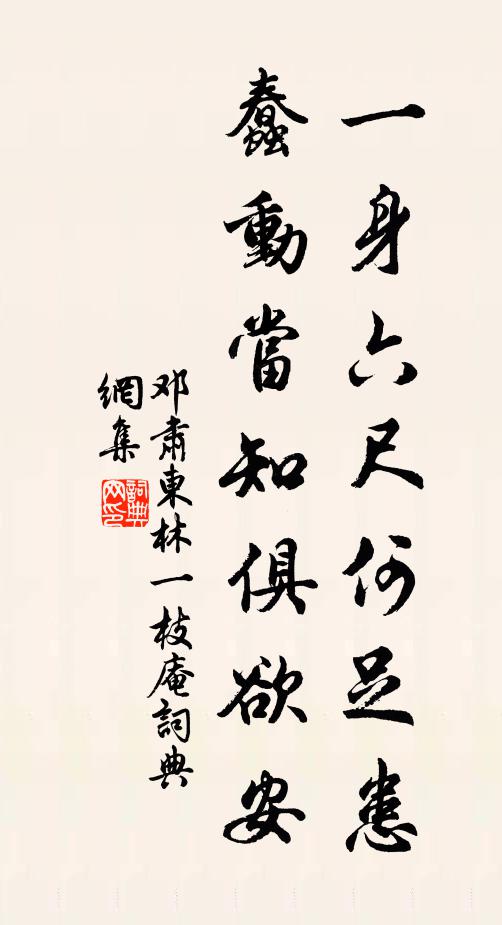 一身六尺何足患
蠢動當知俱欲安
邓肅東林一枝庵詞典
網集
詞典網印